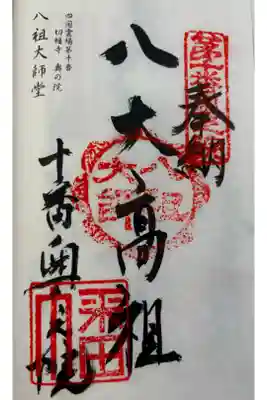 奉納
八大高祖
十番奥之院
四国霊場第十番
切幡寺 奥の院
八祖大師堂